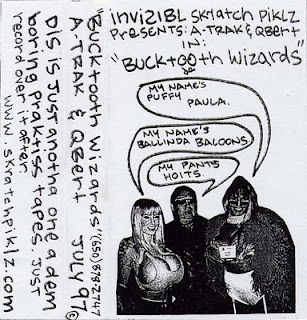 INVIZIBL SKRATCH PIKLZ
PRESENTS: A-TRAK & QBERT
IN:
"BUCKTOOTH WIZARDS"
MY NAME'S
PUFFY
PAULA.
MY NAME'S
BALLINDA BALOONS.
MY PANTS
HOITS.
"BUCKTOOTH WIZARDS"
A-TRAK & QBERT JULY 97 ©
DIS IS JUST ANOTHA ONE A DEM
BORING PRAKTISS TAPES. JUST
RECORD OVER IT AFTER
WWW.SKRATCHPIKLZ.COM